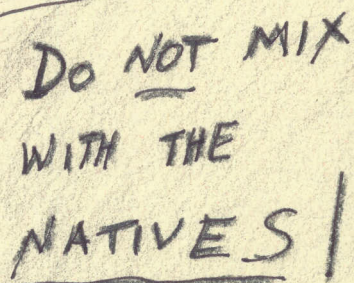 Do NOT MIX
WITH THE
NATIVES